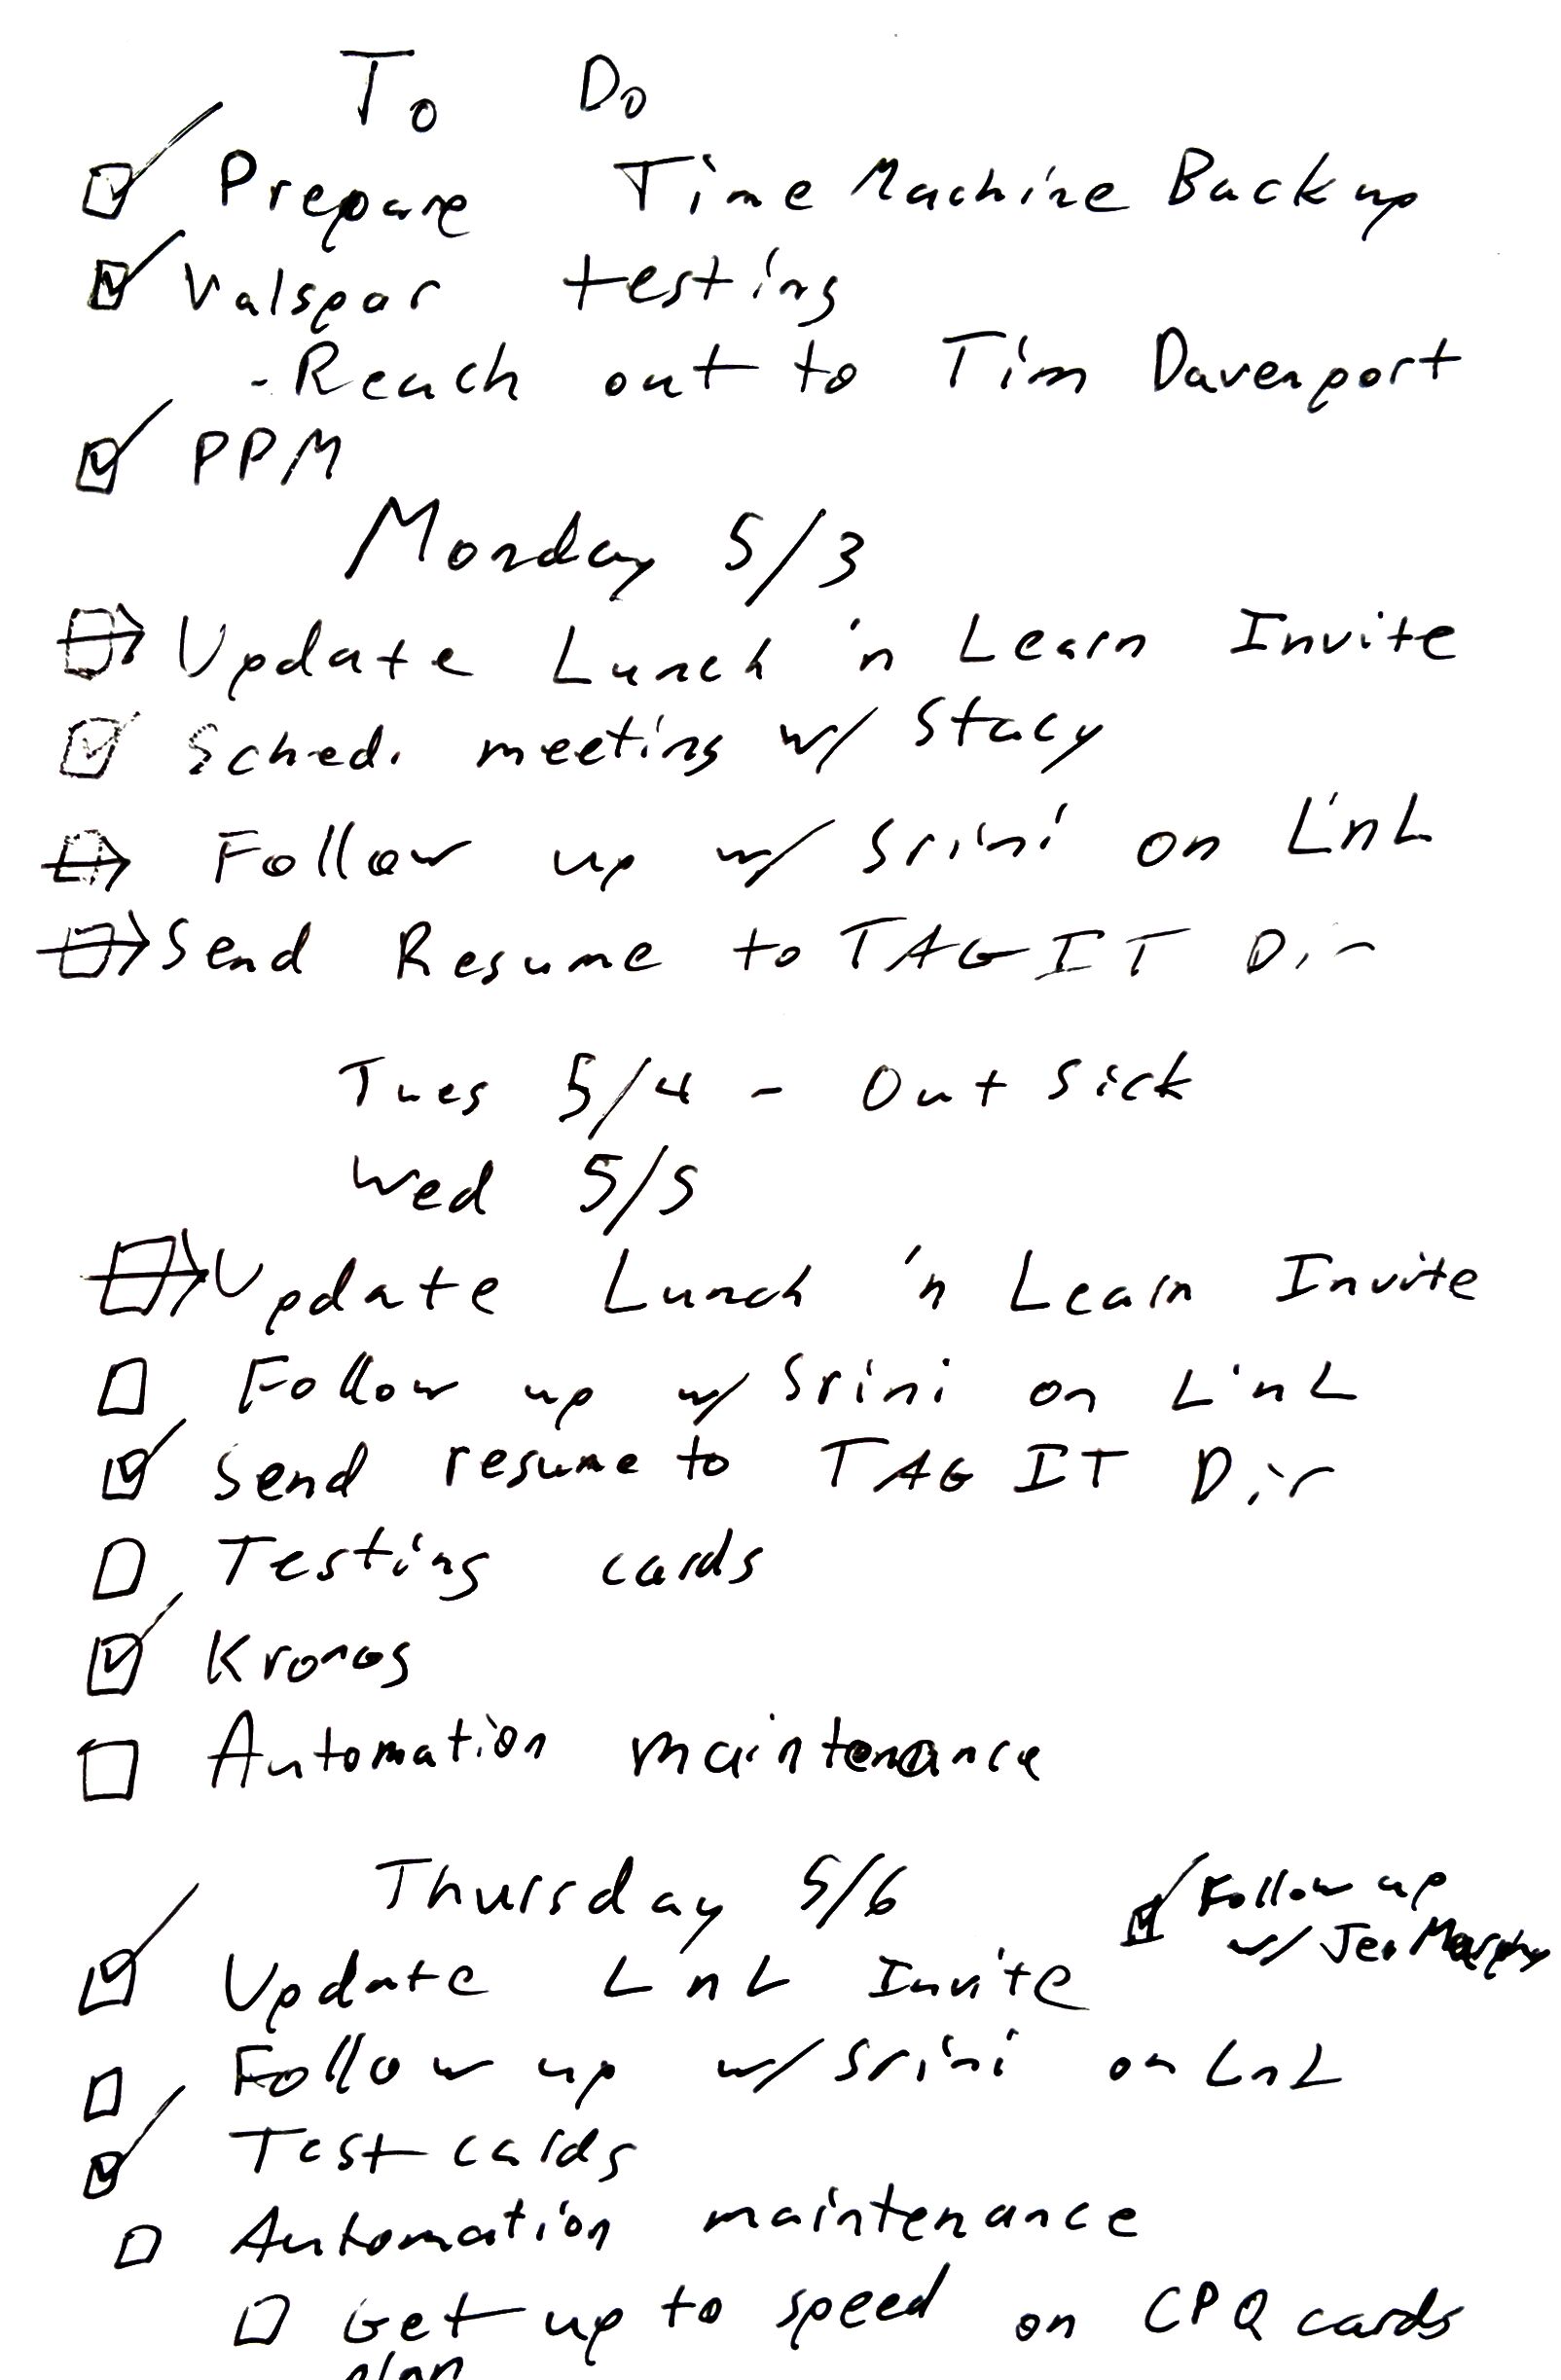 To Do
Prepare Time Machine Backup
Valspar testing
- Reach out to Tim Davenport
PPM
Monday 5/3
Update Lunch 'n Learn Invite
Sched. meeting w/ Stacy
Follow up w/ Srini on L'nL
Send Resume to TAG IT Dir
Tues 5/4 - Out sick
Wed 5/5
Update Lunch 'n Learn Invite
Follow up w/ Srini on L'nL
Send resume to TAG IT Dir
Testing cards
Kronos
Automation maintenance
Thursday 5/6
Follow up
w/ Jen Murphy
Update LnL Invite
Follow up w/ Srini on LnL
Test cards
Automation maintenance
Get up to speed on CPQ cards
plan